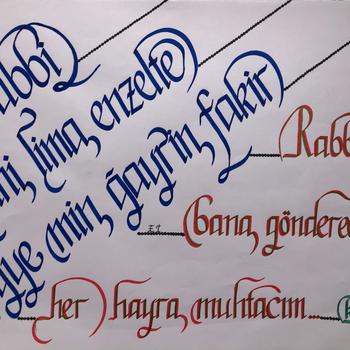 abbi
ni lima enzelte
yye min ğayrin fakir
Rabb
bana göndere
her hayra muhtacım....